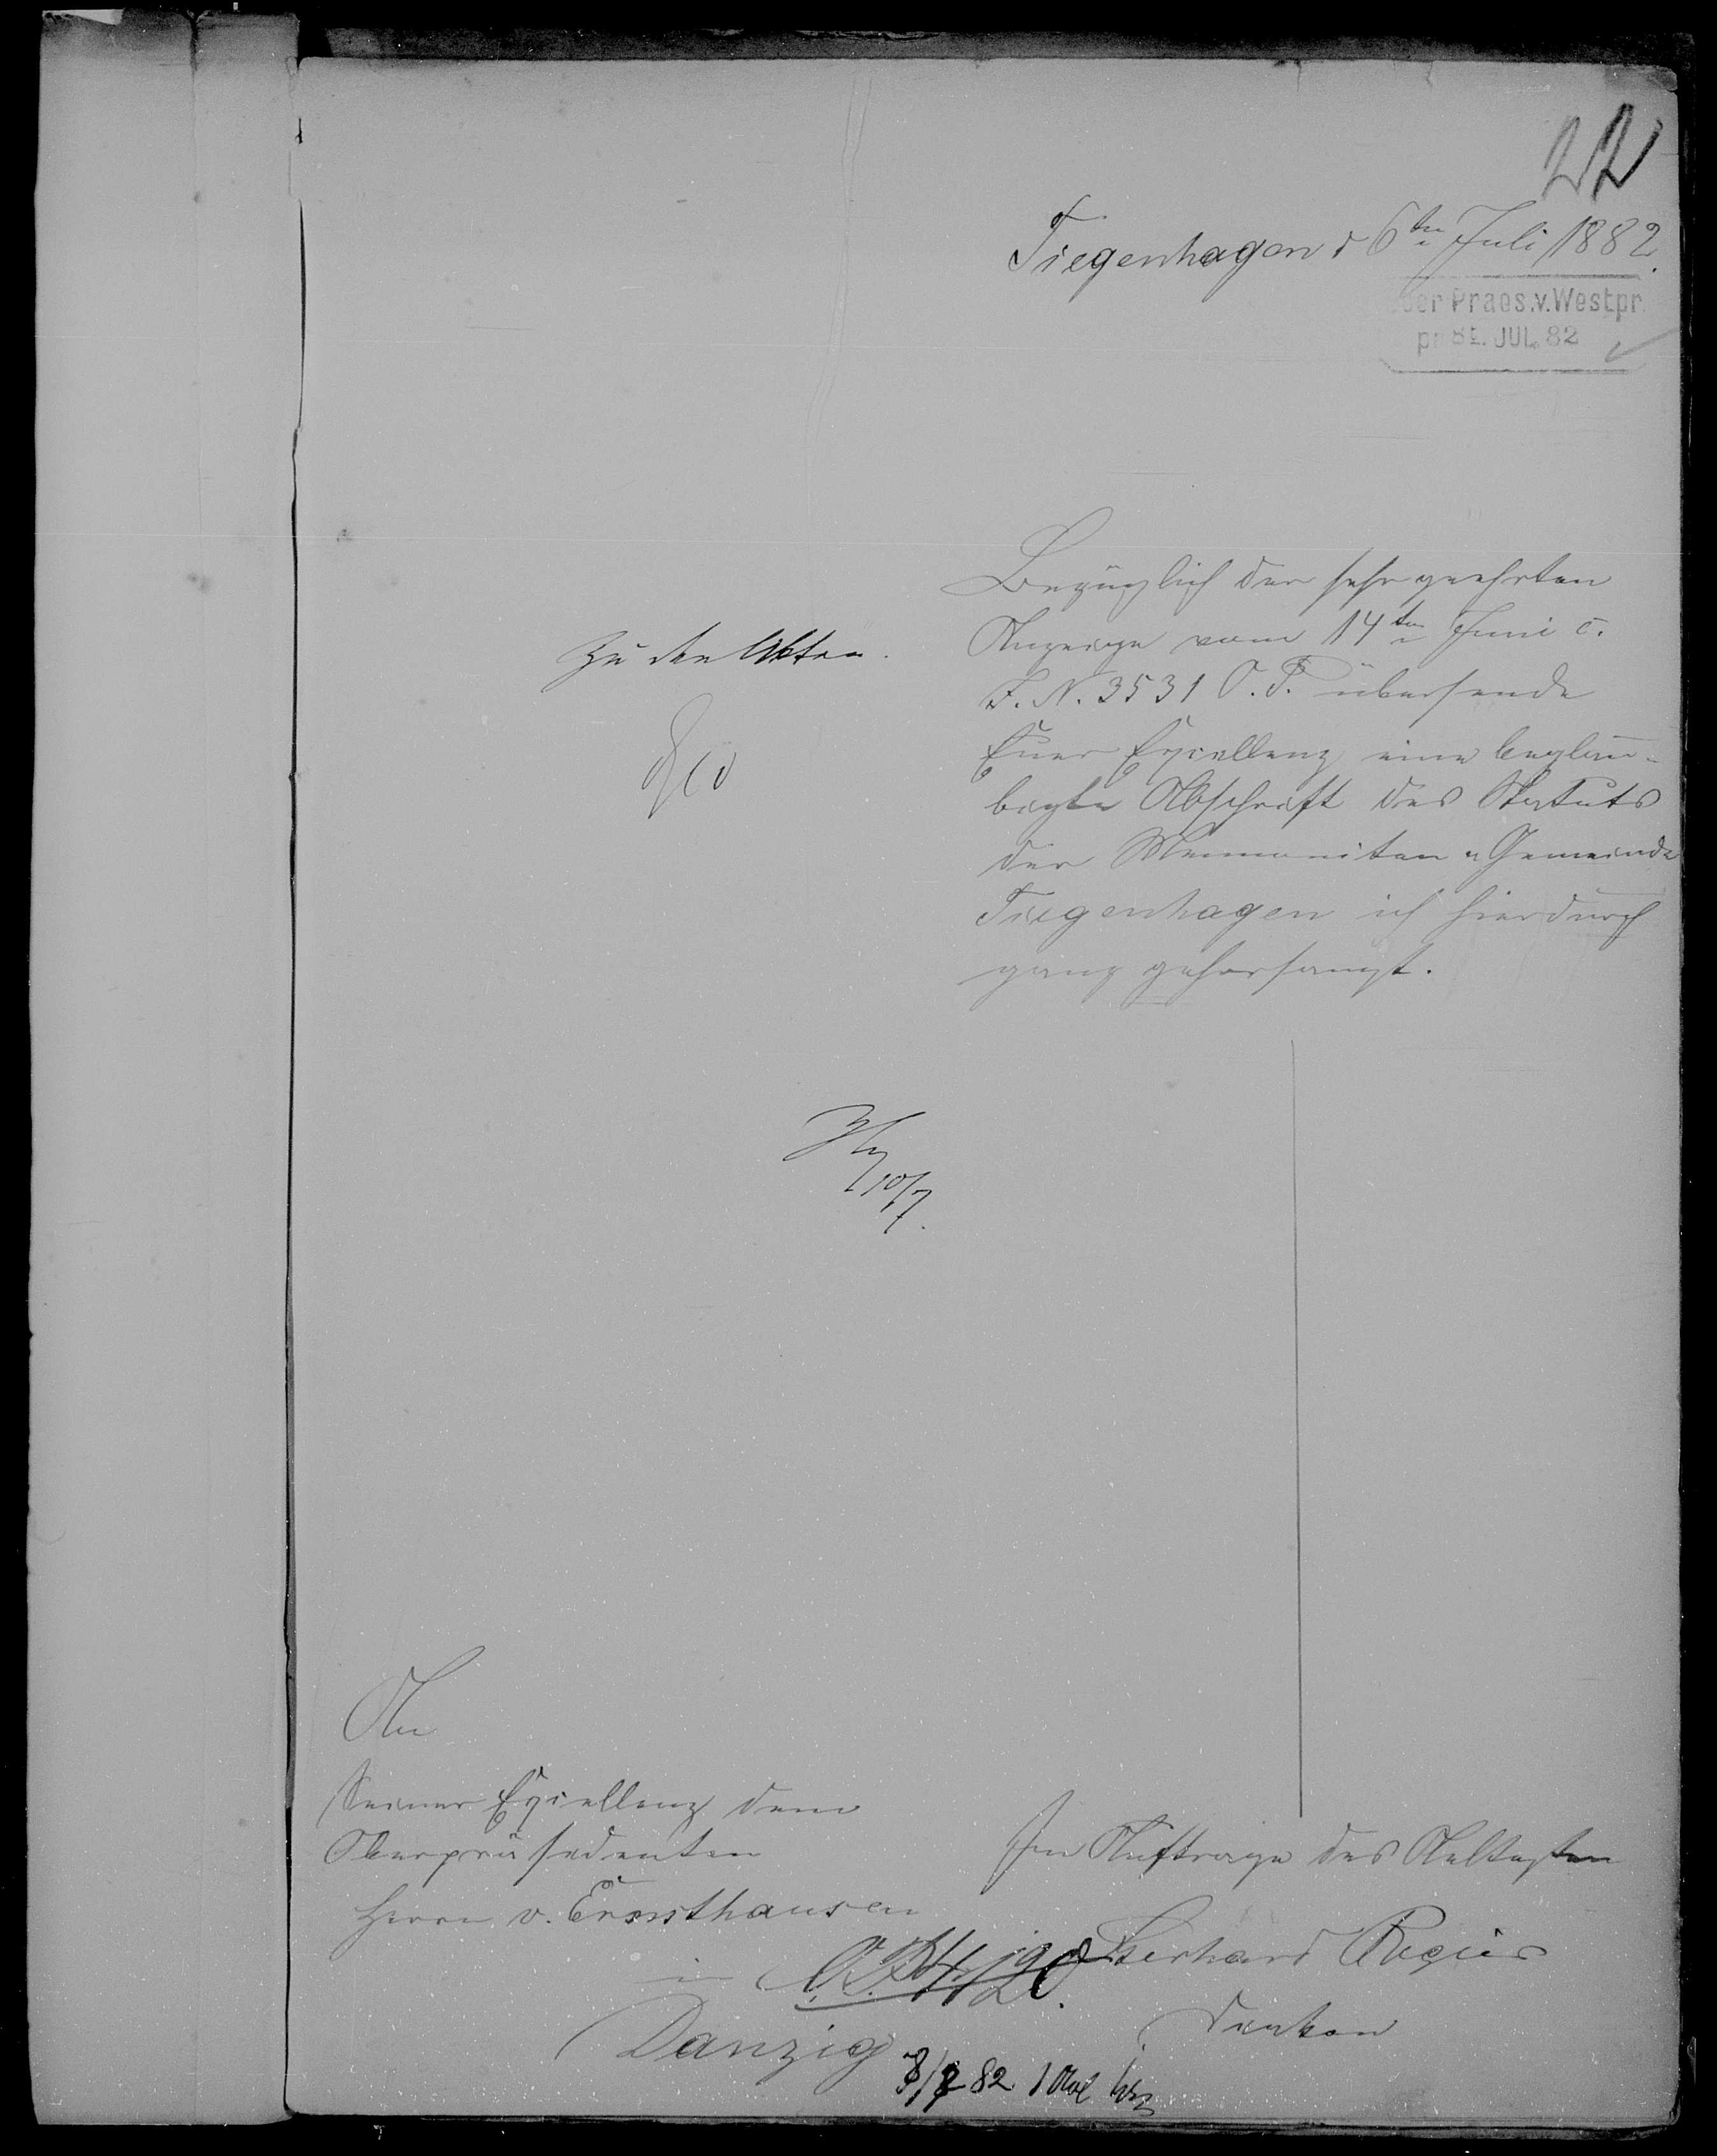 22
Tiegenhagen d 6ten Juli 1882.
Ober Praes. v. Westpr.
pr 8t. JUL. 82
Bezüglich der sehr geehrten
Anzeige vom 14ten Juni c.
J. N. 3531 O. P. übersende
Euer Excellenz eine beglau-
bigte Abschrift des Statuts
der Mennoniten-Gemeinde
Tiegenhagen ich hierdurch
ganz gehorsamst.
Zu den Akten.
10/7.
An
Seiner Excellenz dem
Oberpräsidenten
Herrn v. Ernsthausen
in
Danzig
Im Auftrage des Aeltesten
Gerhard Regier
Diakon
O. P. 4120.
8/7 82. 1